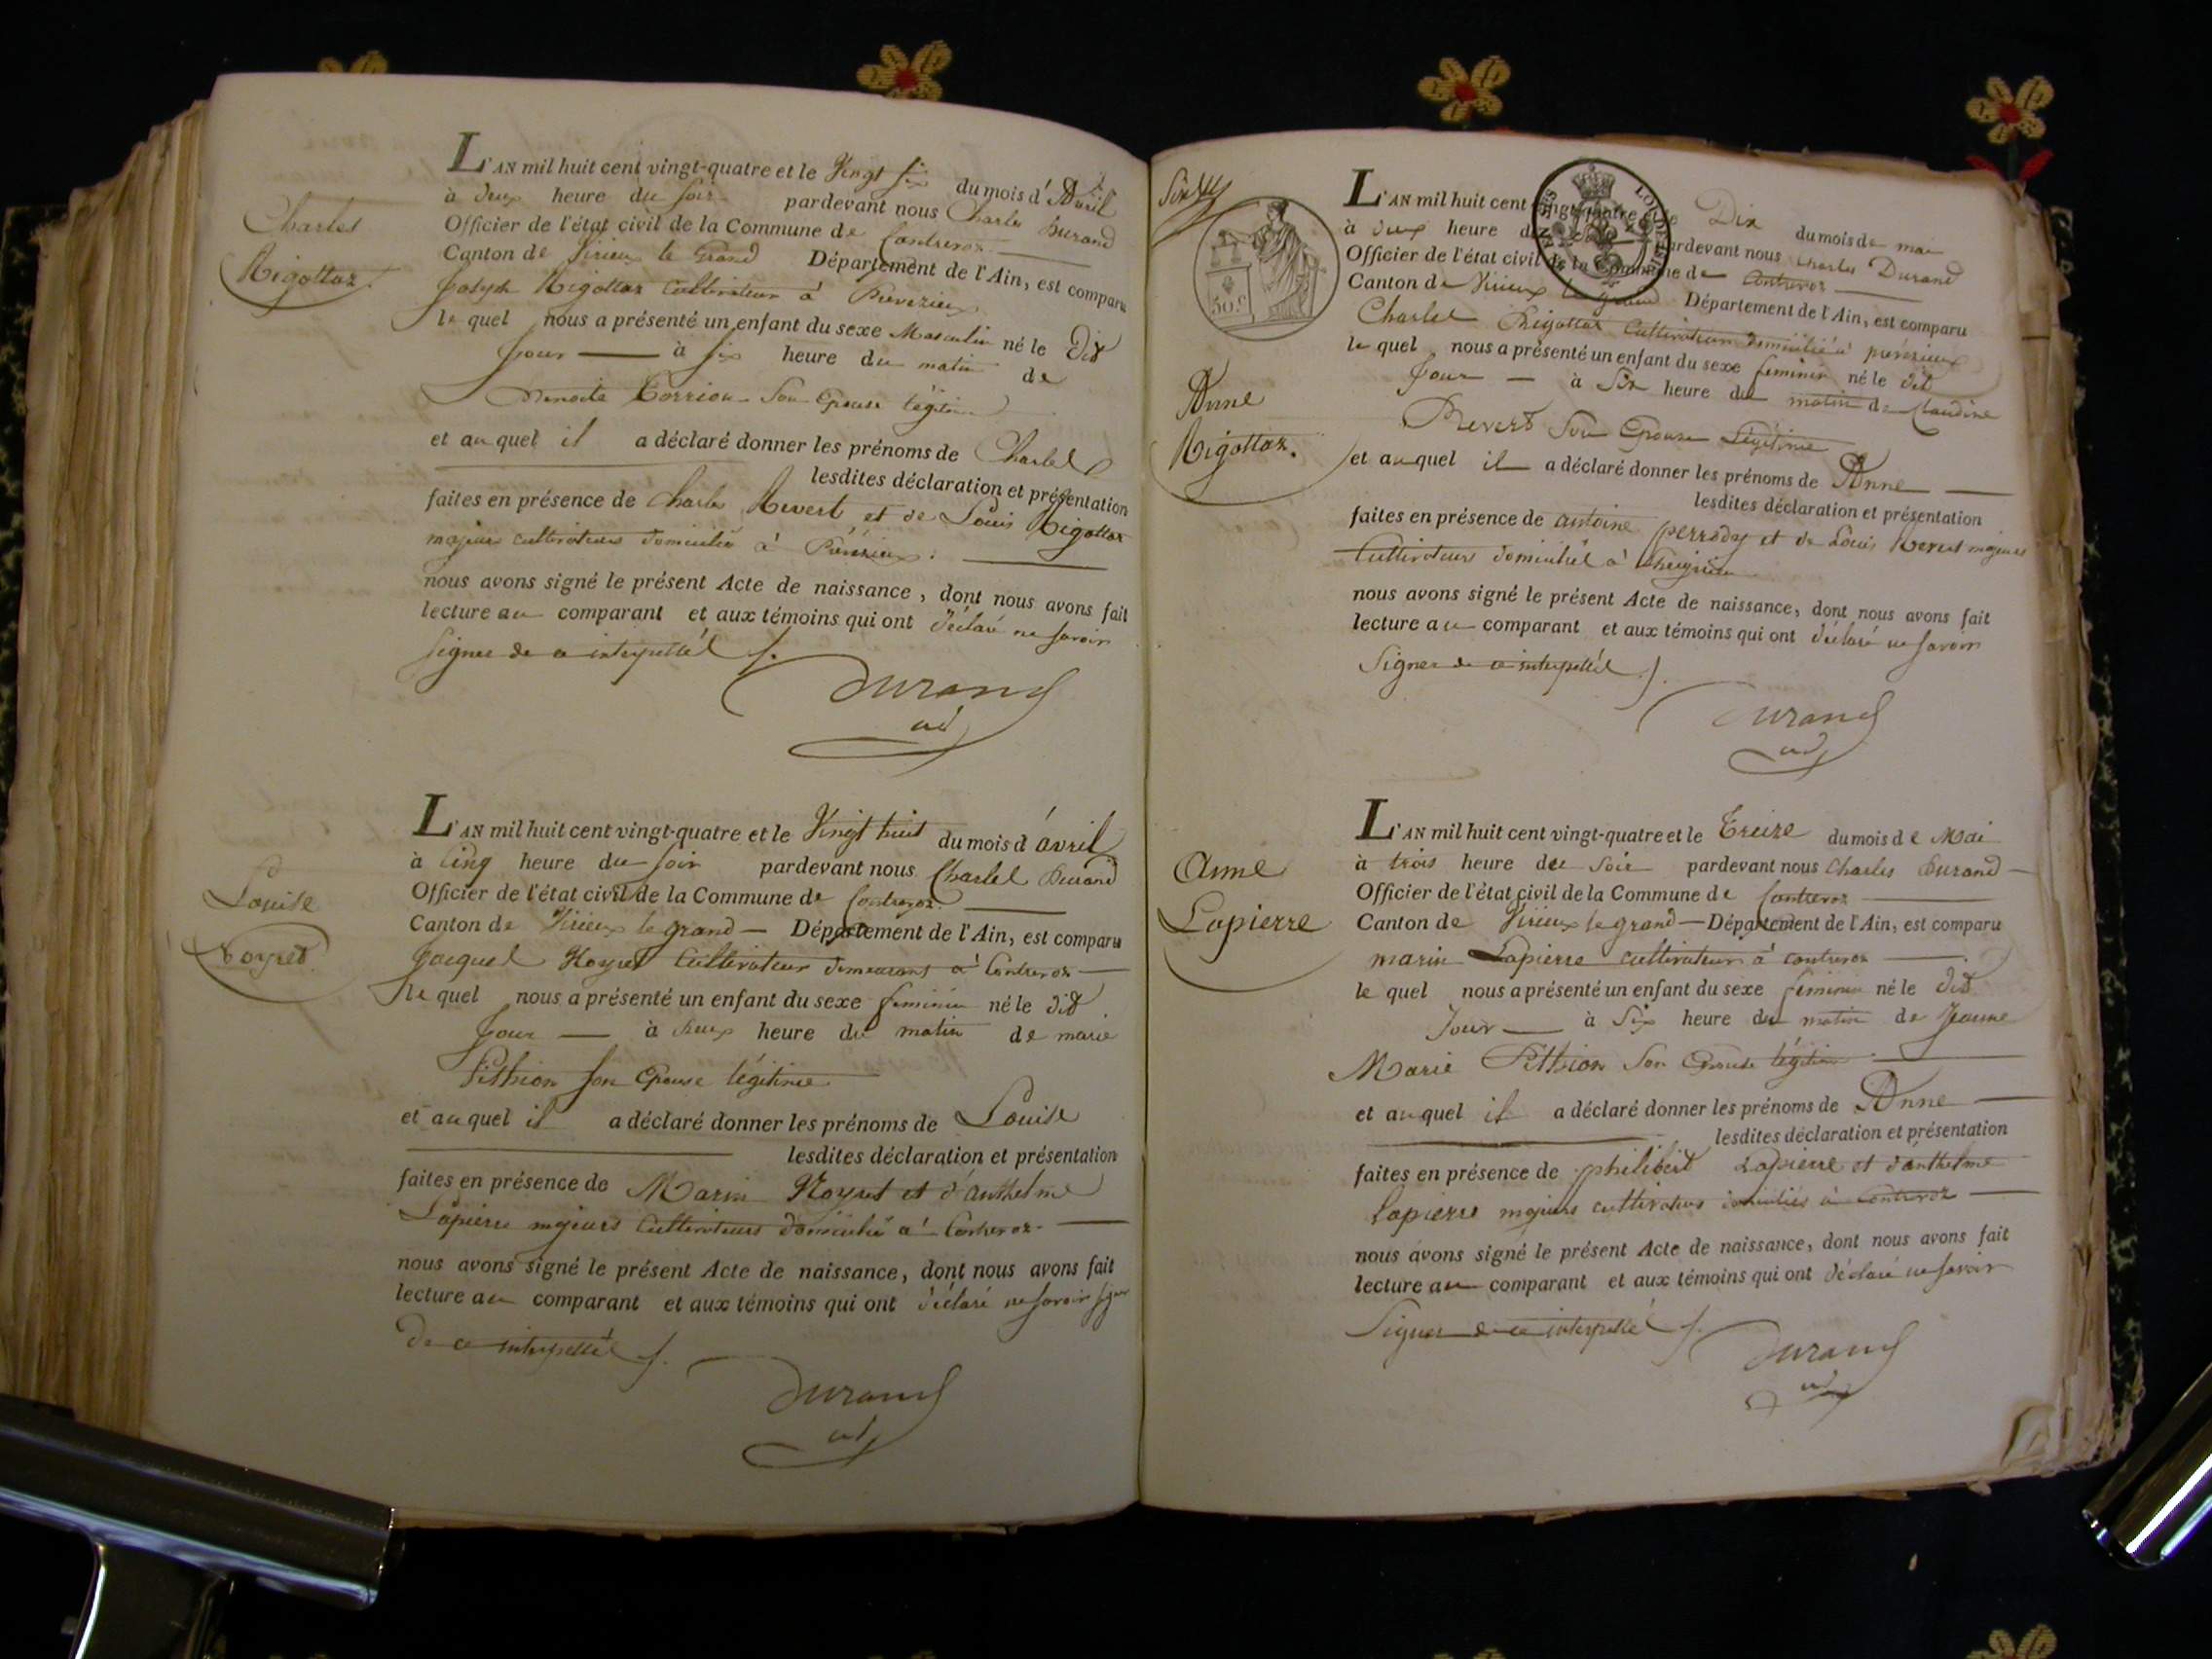 Charles
Rigottaz.
L'AN mil huit cent vingt-quatre et le Vingt six du mois d'Avril
à deux heure du soir pardevant nous Charles Durand
Officier de l'état civil de la Commune de Contrevoz
Canton de Virieu le Grand Département de l'Ain, est comparu
Joseph Rigottaz cultivateur à
le quel nous a présenté un enfant du sexe Masculin né le dit
Jour à six heure du matin de
son Epouse légitime
et au quel il a déclaré donner les prénoms de Charles
lesdites déclaration et présentation
faites en présence de Charles Revert et de Louis Rigottaz
majeurs cultivateurs domiciliés à
nous avons signé le présent Acte de naissance, dont nous avons fait
lecture au comparant et aux témoins qui ont déclaré ne savoir
signer de ce interpellés
Durand
ad
Louise
Noyret
L'AN mil huit cent vingt-quatre et le Vingt huit du mois d'avril
à cinq heure du soir pardevant nous Charles Durand
Officier de l'état civil de la Commune de Contrevoz
Canton de Virieux le grand Département de l'Ain, est comparu
Jacques Noyret Cultivateur demeurant à Contrevoz
le quel nous a présenté un enfant du sexe feminin né le dit
Jour à deux heure du matin de marie
Pithion son Epouse légitime
et au quel il a déclaré donner les prénoms de Louise
lesdites déclaration et présentation
faites en présence de Marin Noyret et d'anthelme
Lapierre majeurs Cultivateurs domiciliés à Contrevoz
nous avons signé le présent Acte de naissance, dont nous avons fait
lecture au comparant et aux témoins qui ont déclaré ne savoir signer
de ce interpellés
Durand
ad
50 c.
Anne
Rigottaz.
L'AN mil huit cent vingt-quatre et le Dix du mois de mai
à deux heure du pardevant nous Charles Durand
Officier de l'état civil de la Commune de Contrevoz
Canton de Virieux le grand Département de l'Ain, est comparu
Charles Rigottaz Cultivateur domicilié à
le quel nous a présenté un enfant du sexe feminin né le dit
Jour à Six heure du matin de Claudine
Revert son Epouse Légitime
et au quel il a déclaré donner les prénoms de Anne
lesdites déclaration et présentation
faites en présence de antoine perrody et de Louis Revert majeurs
Cultivateurs domiciliés à
nous avons signé le présent Acte de naissance, dont nous avons fait
lecture au comparant et aux témoins qui ont déclaré ne savoir
Signer de ce interpellés
Durand
ad
Anne
Lapierre
L'AN mil huit cent vingt-quatre et le Treize du mois de Mai
à trois heure du Soir pardevant nous Charles Durand
Officier de l'état civil de la Commune de Contrevoz
Canton de Virieux le grand Département de l'Ain, est comparu
marin Lapierre cultivateur à contrevoz
le quel nous a présenté un enfant du sexe feminin né le dit
Jour à Six heure du matin de Jeanne
Marie Pithion son Epouse légitime
et au quel il a déclaré donner les prénoms de Anne
lesdites déclaration et présentation
faites en présence de philibert Lapierre et d'anthelme
Lapierre majeurs cultivateurs domiciliés à Contrevoz
nous avons signé le présent Acte de naissance, dont nous avons fait
lecture au comparant et aux témoins qui ont déclaré ne savoir
Signer de ce interpellé
Durand
ad